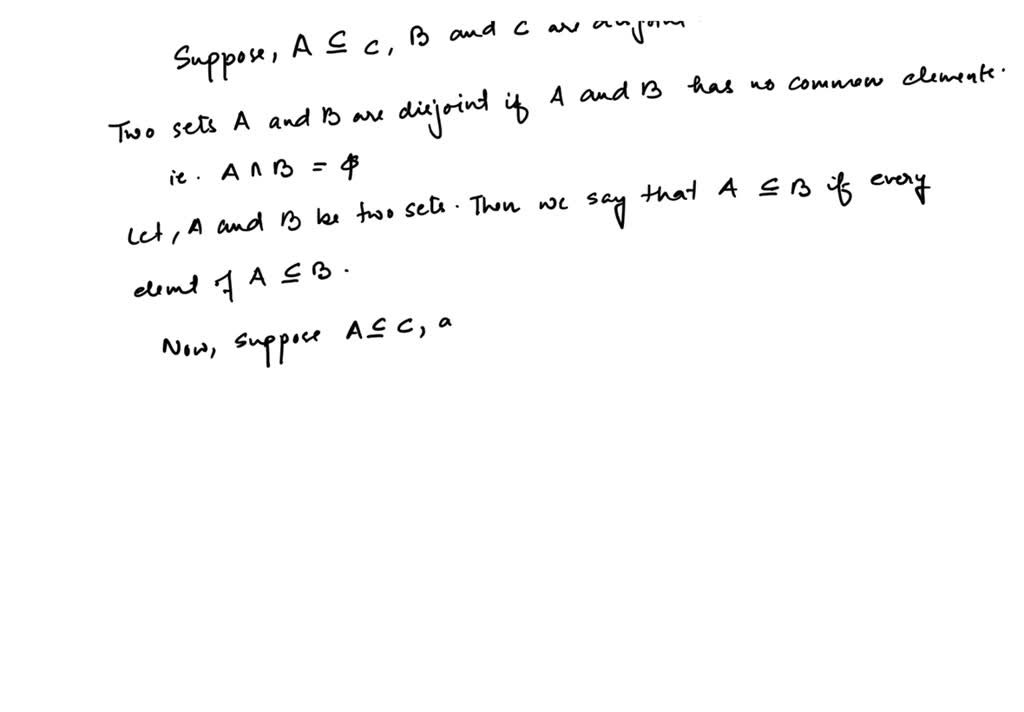 Suppose, A ⊆ C, B and C are disjoint
Two sets A and B are disjoint if A and B has no common elements.
ie. A ∩ B = ϕ
Let, A and B be two sets. Then we say that A ⊆ B if every
elemt of A ⊆ B.
Now, suppose A ⊆ C, a